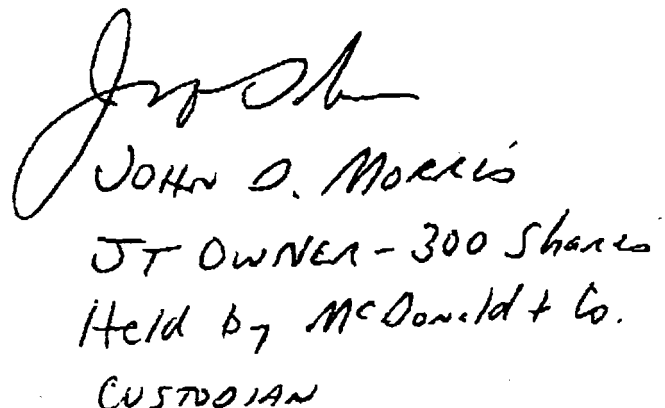 JOHN D. MORRIS
JT OWNER - 300 Shares
Held by McDonald + Co.
CUSTODIAN